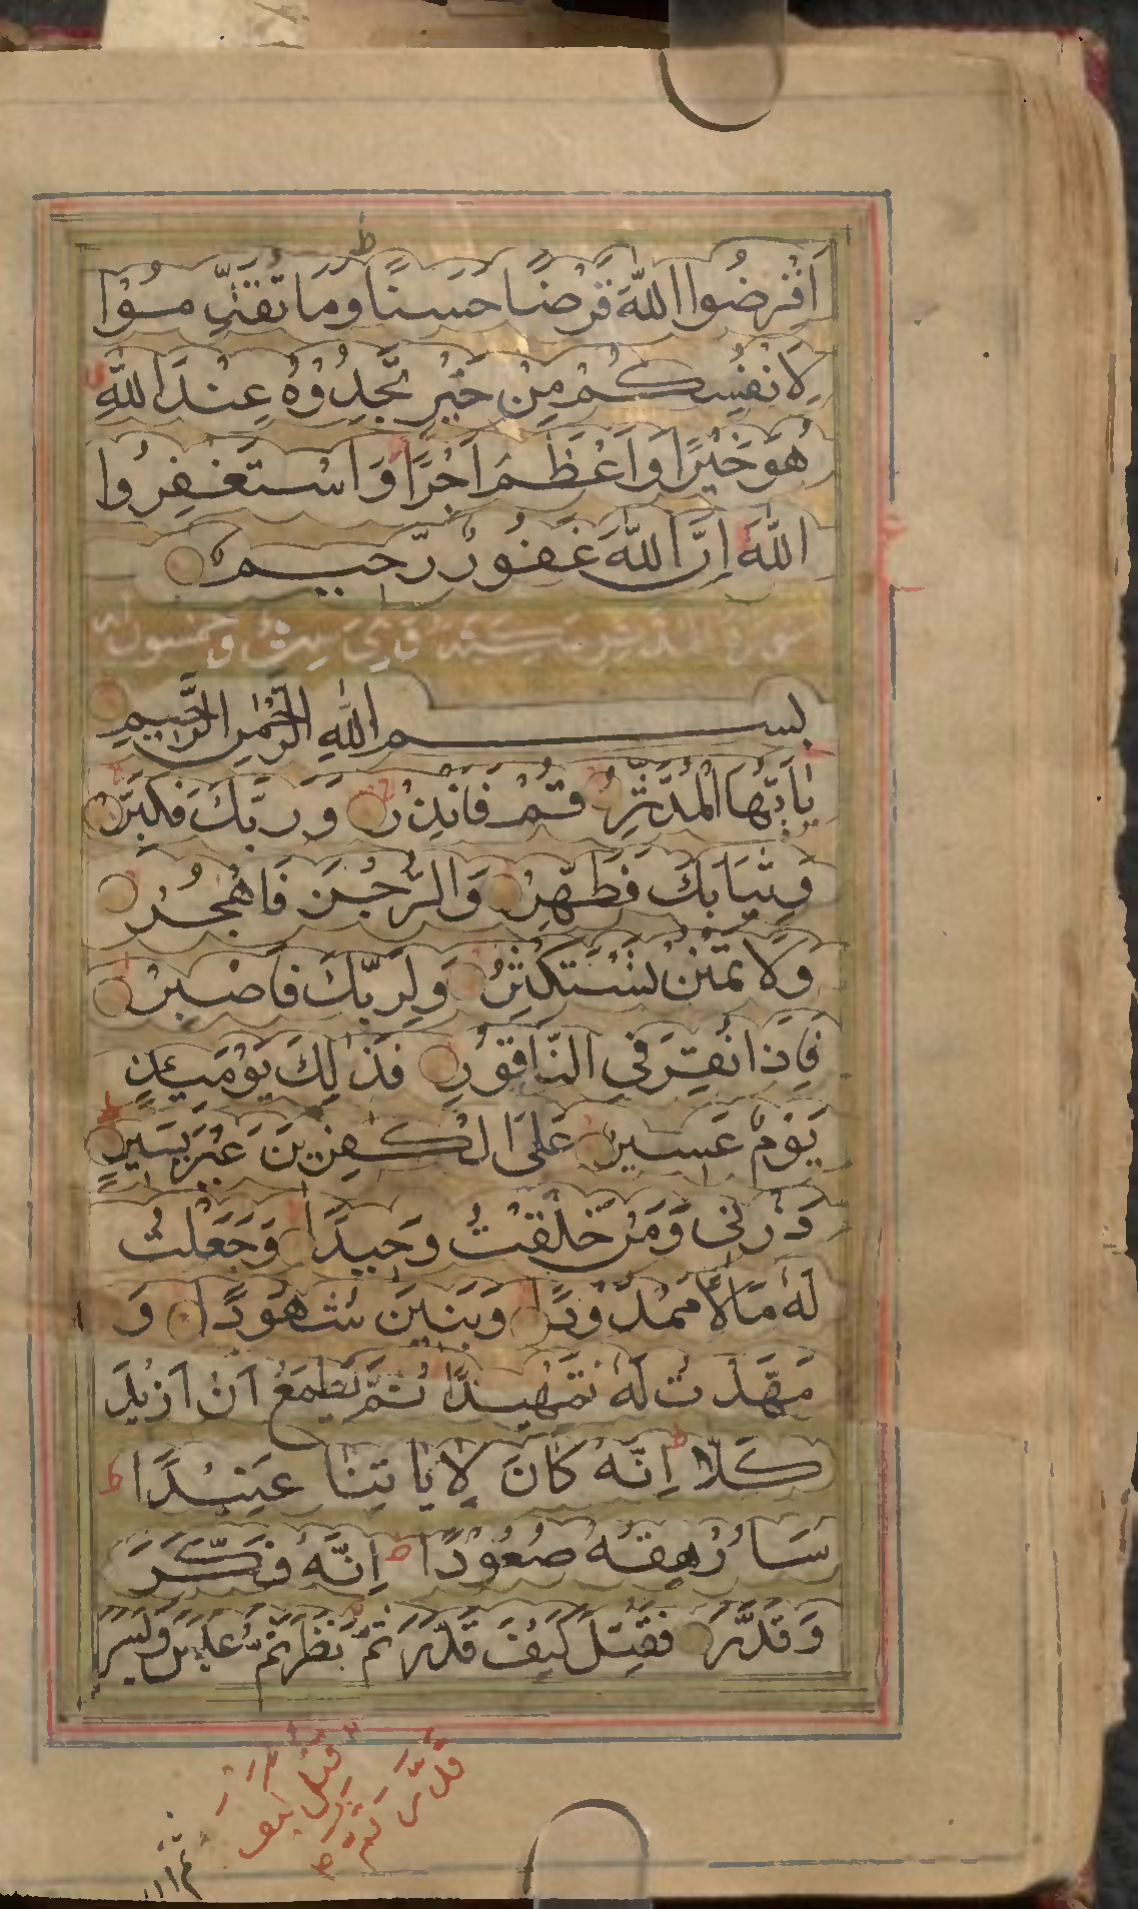 اَقْرِضُوا اللّٰهَ قَرْضًا حَسَنًا وَمَا تُقَدِّمُوْا
لِاَنْفُسِكُمْ مِنْ خَيْرٍ تَجِدُوْهُ عِنْدَ اللّٰهِ
هُوَ خَيْرًا وَاَعْظَمَ اَجْرًا وَاسْتَغْفِرُوا
اللّٰهَ اِنَّ اللّٰهَ غَفُوْرٌ رَّحِيْمٌ
سورة المدثر مكية وهي ست وخمسون
بسم اللّٰهِ الرَّحْمٰنِ الرَّحِيمِ
يٰاَيُّهَا الْمُدَّثِّرُ قُمْ فَاَنْذِرْ وَرَبَّكَ فَكَبِّرْ
وَثِيَابَكَ فَطَهِّرْ وَالرُّجْزَ فَاهْجُرْ
وَلَا تَمْنُنْ تَسْتَكْثِرُ وَلِرَبِّكَ فَاصْبِرْ
فَاِذَا نُقِرَ فِي النَّاقُوْرِ فَذٰلِكَ يَوْمَئِذٍ
يَوْمٌ عَسِيرٌ عَلَى الْكٰفِرِيْنَ غَيْرُ يَسِيرٍ
ذَرْنِي وَمَنْ خَلَقْتُ وَحِيدًا وَجَعَلْتُ
لَهٗ مَالًا مَمْدُوْدًا وَبَنِينَ شُهُوْدًا وَ
مَهَّدْتُ لَهٗ تَمْهِيدًا ثُمَّ يَطْمَعُ اَنْ اَزِيْدَ
كَلَّا اِنَّهٗ كَانَ لِاٰيَاتِنَا عَنِيْدًا
سَاُرْهِقُهٗ صَعُوْدًا اِنَّهٗ فَكَّرَ
وَقَدَّرَ فَقُتِلَ كَيْفَ قَدَّرَ ثُمَّ نَظَرَ ثُمَّ عَبَسَ وَبَسَرَ
قتل كيف
قدر ثم